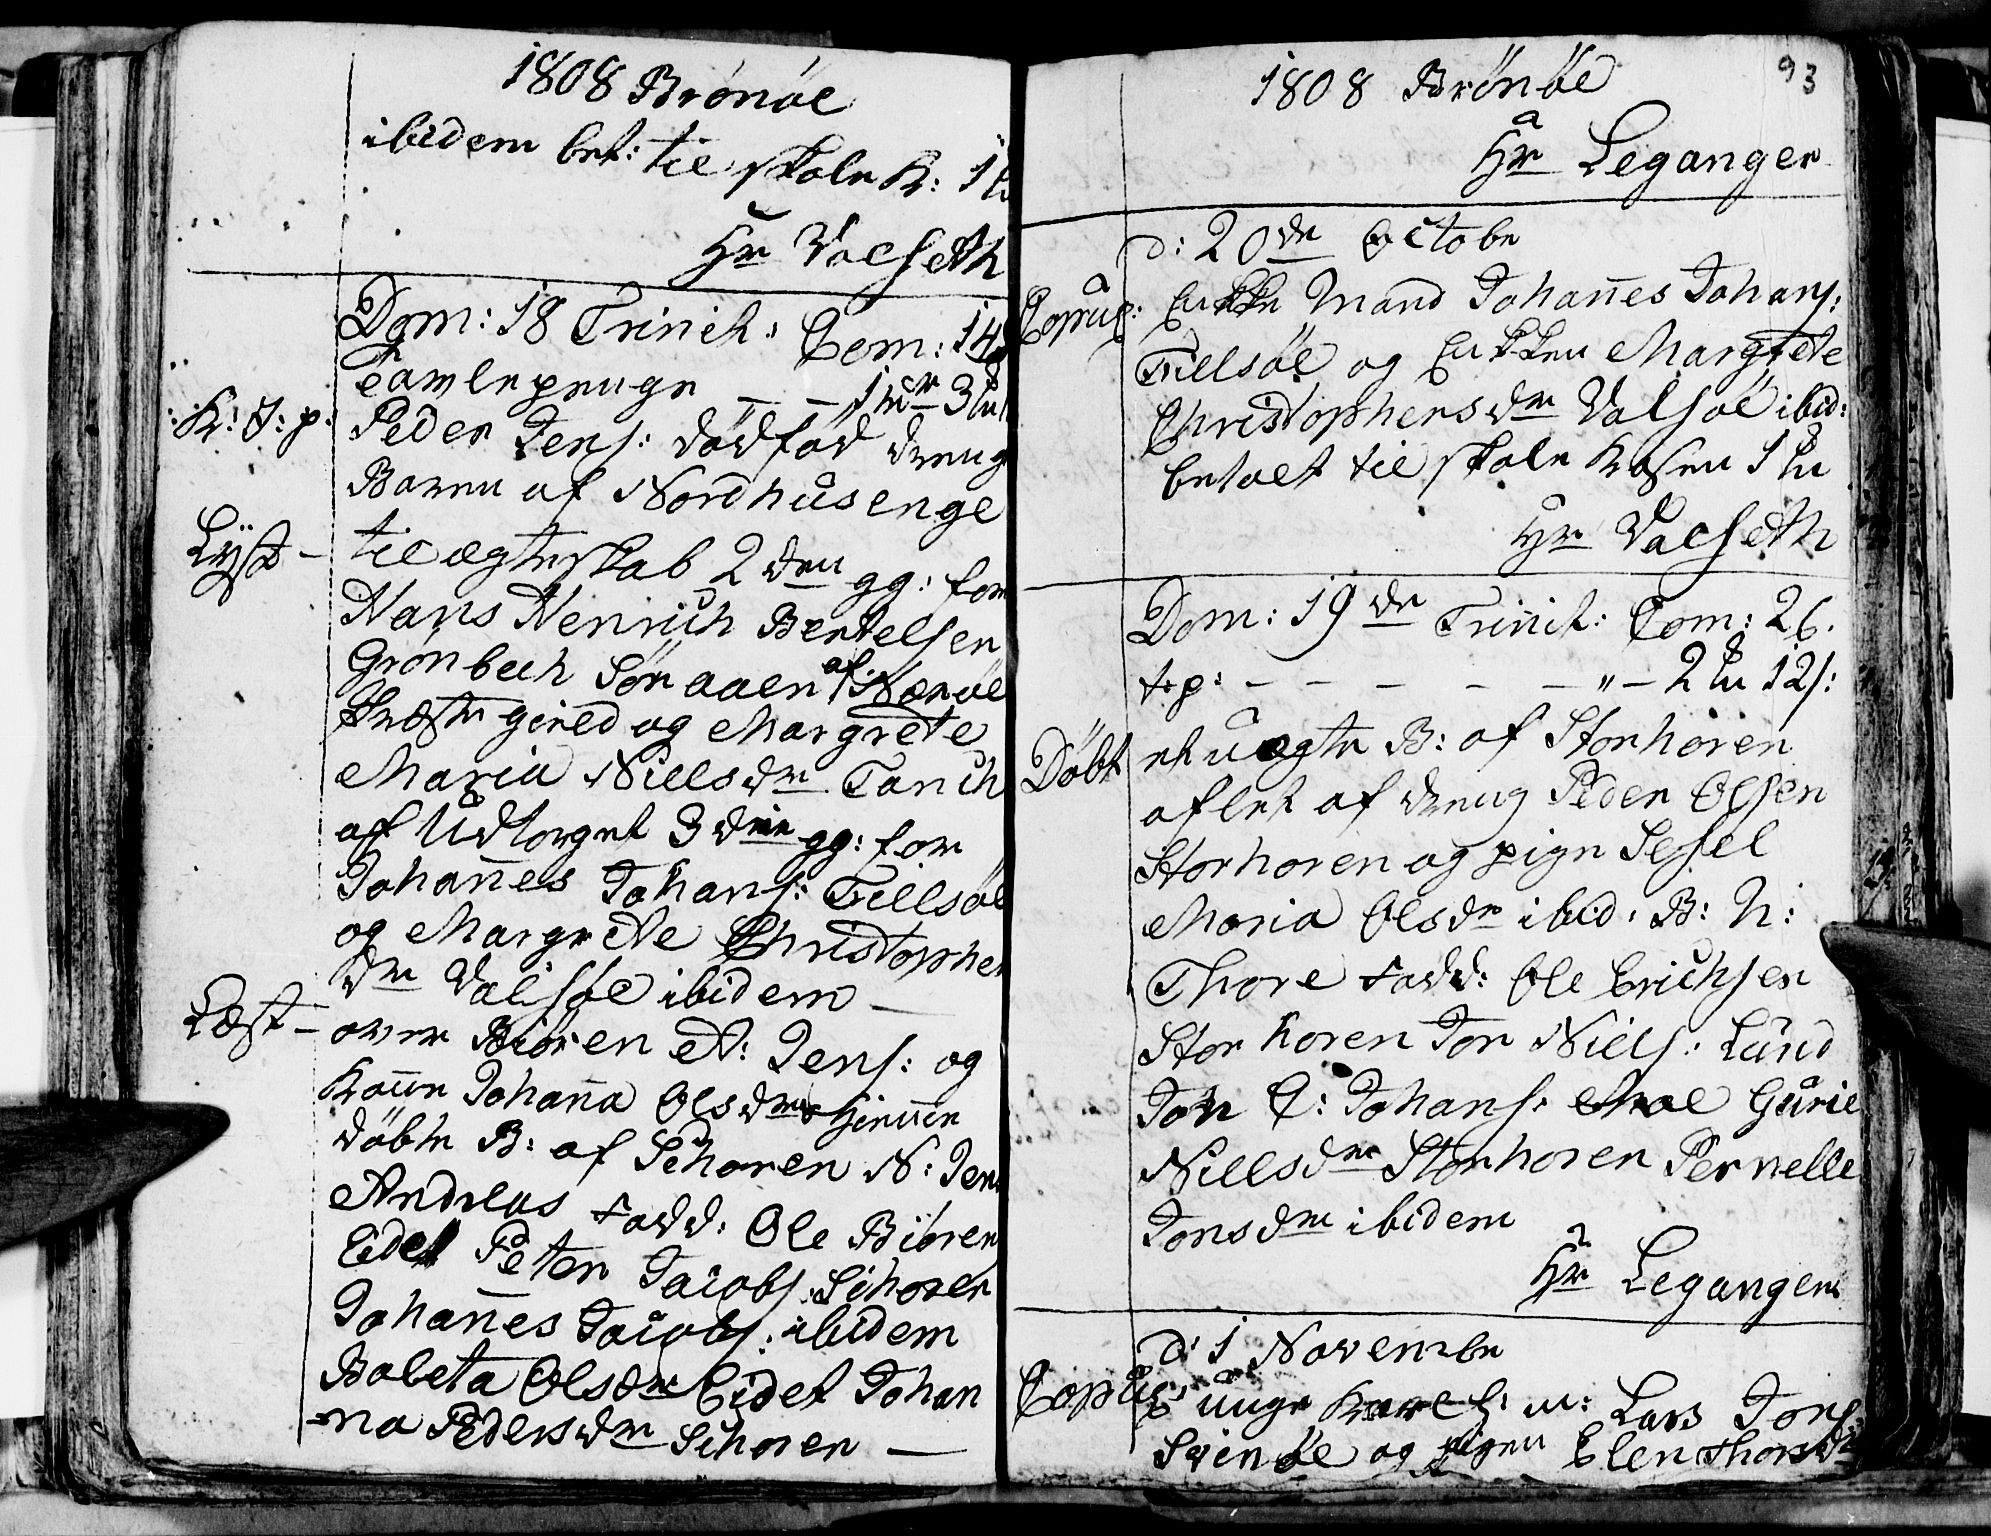 1808 Brönöe
ibidem bet: til skole K: 1
Hr Valseth
Dom: 18 Trinit: Com: 14
K: I: p: Peder Jens: dødfød dreng
Baren af Nordhusenge
Lyst — til ægteskab 2den gg: for
Hans Henrich Bentelsen
Grönbech Sör aaen af Nærøe
Præste gield og Margrete
Maria Nielsdr Tanch
af Udtorget 3die gg: for
Johan̅es Johans: Tillsöe
og Margrete Christopher
dr Valsöe ibidem —
Læst — over Biören A: Jens: og
Kone Johan̅a Olsdrs hiemme
döbte B: af Sehoren N: Jens
Andreas Fadd: Ole Biören
Eidet Peter Jacobs: Sihoren
Johan̅es Jacobs: ibidem
Boleta Olsdr Eidet Johan
-na Pedersdr Sihoren —
93
1808 Brönöe
Hr Leganger
d: 20de Octobr
Copul: Enke Mand Johan̅es Johans:
Tillsöe og Enken Margrete
Christophersdr Valsöe ibid:
betalt til skole Kasen 1
Hr Valseth
Dom: 19de Trinit: Com: 26.
t: p: — — — — — " — 2 12s:
Döbt et uægte B: af Storhoren
aflet af dreng Peder Olsen
Storhoren og pige Sesel
Maria Olsdr ibid: B: N:
Thore Fadd: Ole Erichsen
Storhoren Jon Niels: Lund
Jon C: Johans: Moe Gurie
Nielsdr Storhoren Pernelle
Jonsdr ibidem
Hr Leganger
d: 1 Novembr
Copul: unge Karl Lars Jons
Svinöe og pigen Elen Thorsdr